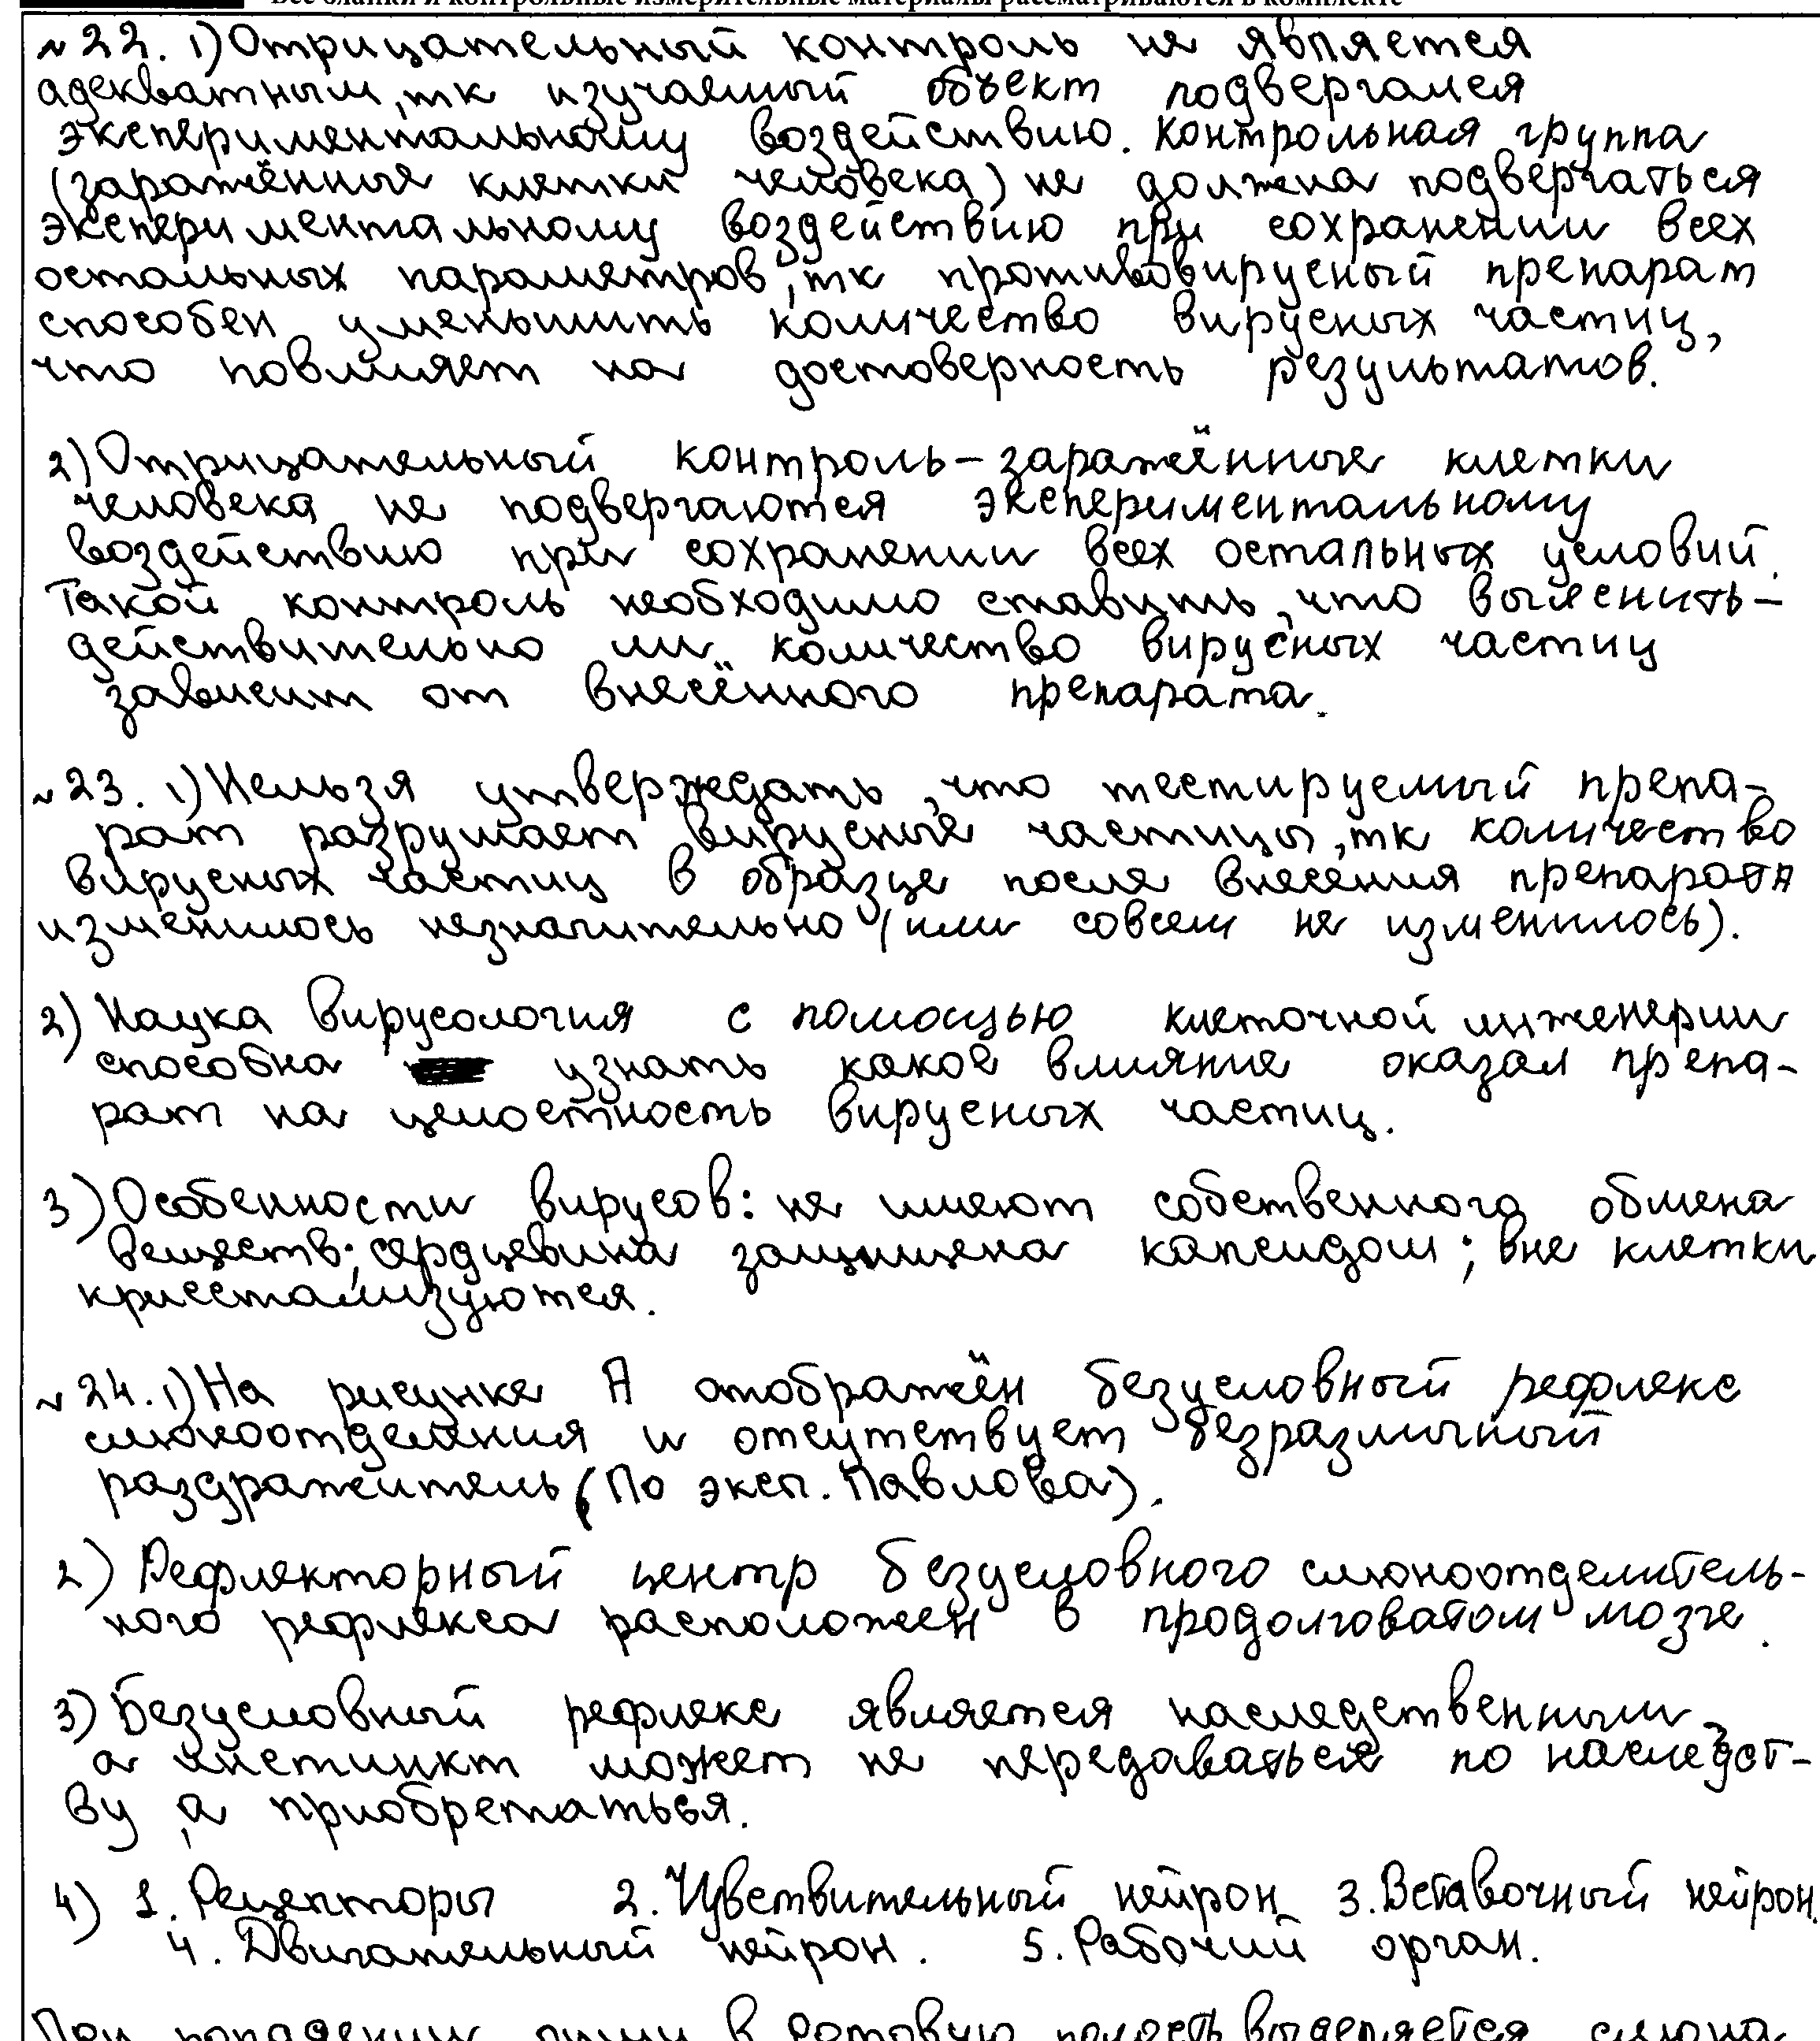 Все бланки и контрольные измерительные материалы рассматриваются в комплекте
№22. 1) Отрицательный контроль не является
адекватным, тк изучаемый объект подвергался
экспериментальному воздействию. Контрольная группа
(заражённые клетки человека) не должна подвергаться
экспериментальному воздействию при сохранении всех
остальных параметров, тк противовирусный препарат
способен уменьшить количество вирусных частиц,
что повлияет на достоверность результатов.
2) Отрицательный контроль – заражённые клетки
человека не подвергаются экспериментальному
воздействию при сохранении всех остальных условий.
Такой контроль необходимо ставить, что выяснить –
действительно ли количество вирусных частиц
зависит от внесённого препарата.
№23. 1) Нельзя утверждать, что тестируемый препа-
рат разрушает вирусные частицы, тк количество
вирусных частиц в образце после внесения препарата
изменилось незначительно (или совсем не изменилось).
2) Наука вирусология с помощью клеточной инженерии
способна узнать какое влияние оказал препа-
рат на целостность вирусных частиц.
3) Особенности вирусов: не имеют собственного обмена
веществ; сердцевина защищена капсидом; вне клетки
кристализуются.
№24. 1) На рисунке А отображён безусловный рефлекс
слюноотделения и отсутствует безразличный
раздражитель (По эксп. Павлова).
2) Рефлекторный центр безусловного слюноотделитель-
ного рефлекса расположен в продолговатом мозге.
3) Безусловный рефлекс является наследственным,
а инстинкт может не передаваться по наследст-
ву, а приобретаться.
4) 1. Рецепторы 2. Чувствительный нейрон 3. Вставочный нейрон.
4. Двигательный нейрон. 5. Рабочий орган.
При попадении пищи в ротовую полость выделяется слюна